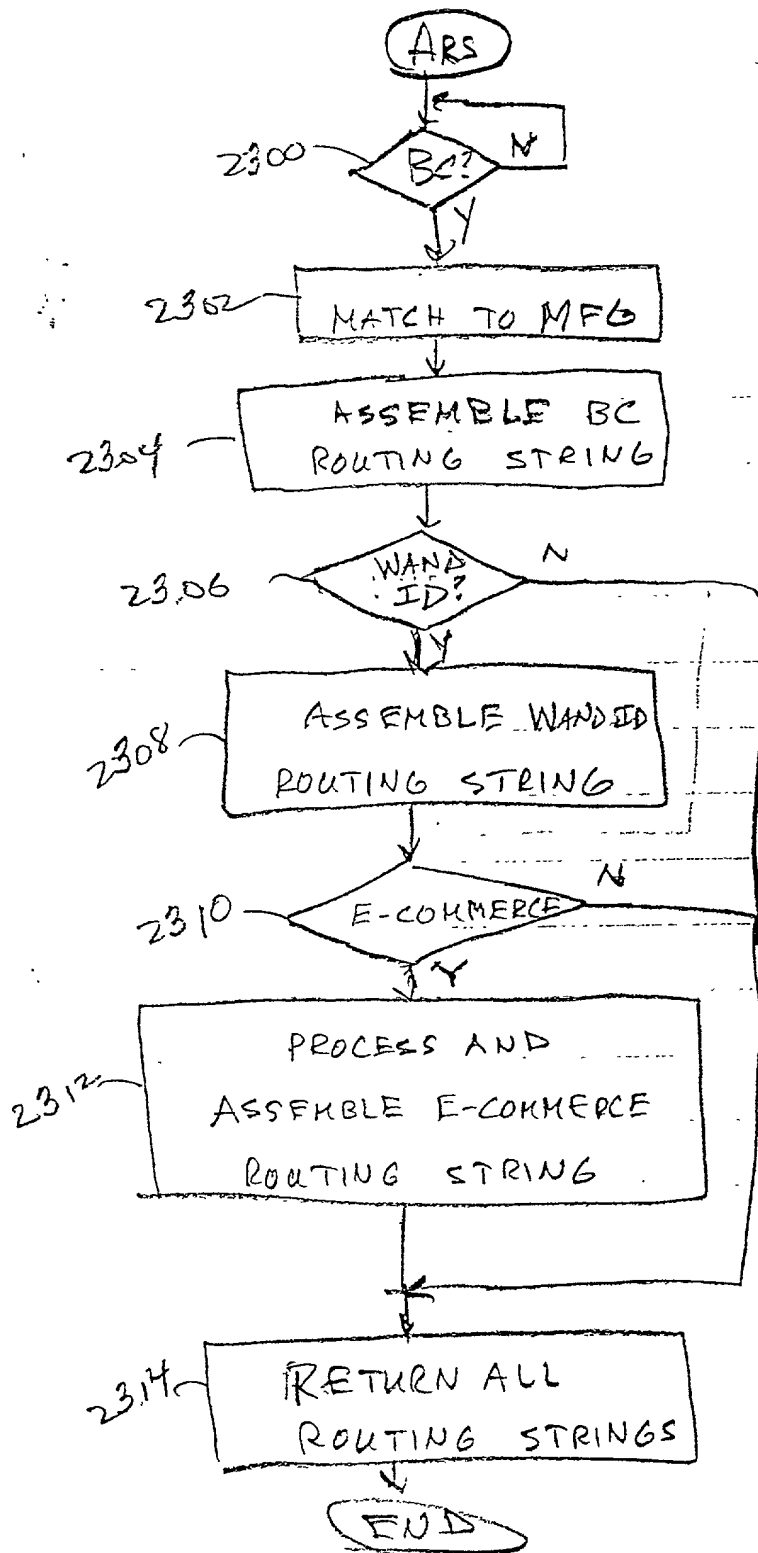 ARS
2300
BC?
N
Y
2302
MATCH TO MFG
2304
ASSEMBLE BC
ROUTING STRING
2306
WAND
ID?
N
Y
2308
ASSEMBLE WAND ID
ROUTING STRING
2310
E-COMMERCE
N
Y
2312
PROCESS AND
ASSEMBLE E-COMMERCE
ROUTING STRING
2314
RETURN ALL
ROUTING STRINGS
END